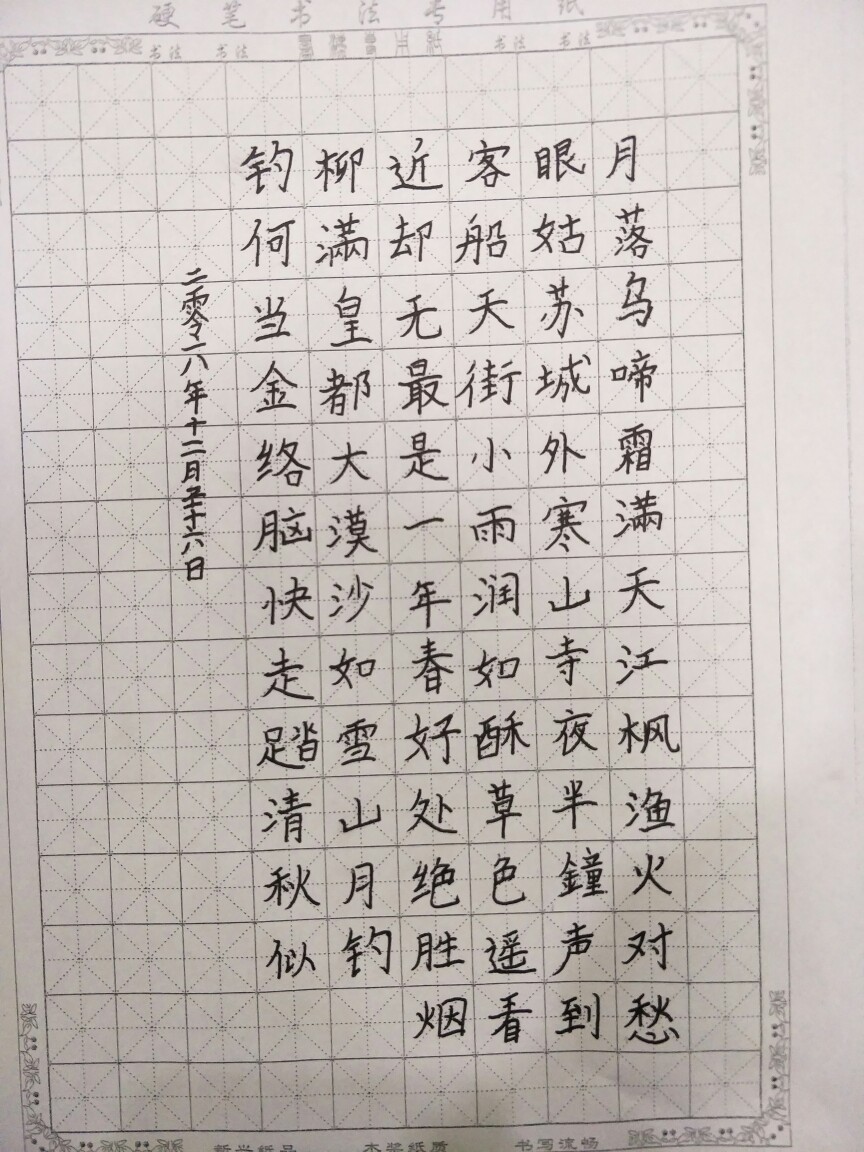 硬笔书法专用纸
书法 书法 书法 书法
月落乌啼霜滿天江枫渔火对愁
眼姑苏城外寒山寺夜半鐘声到
客船天街小雨润如酥草色遥看
近却无最是一年春好处绝胜烟
柳滿皇都大漠沙如雪山月钓
钓何当金络脑快走踏清秋似
二零一八年十二月十六日
书写流畅